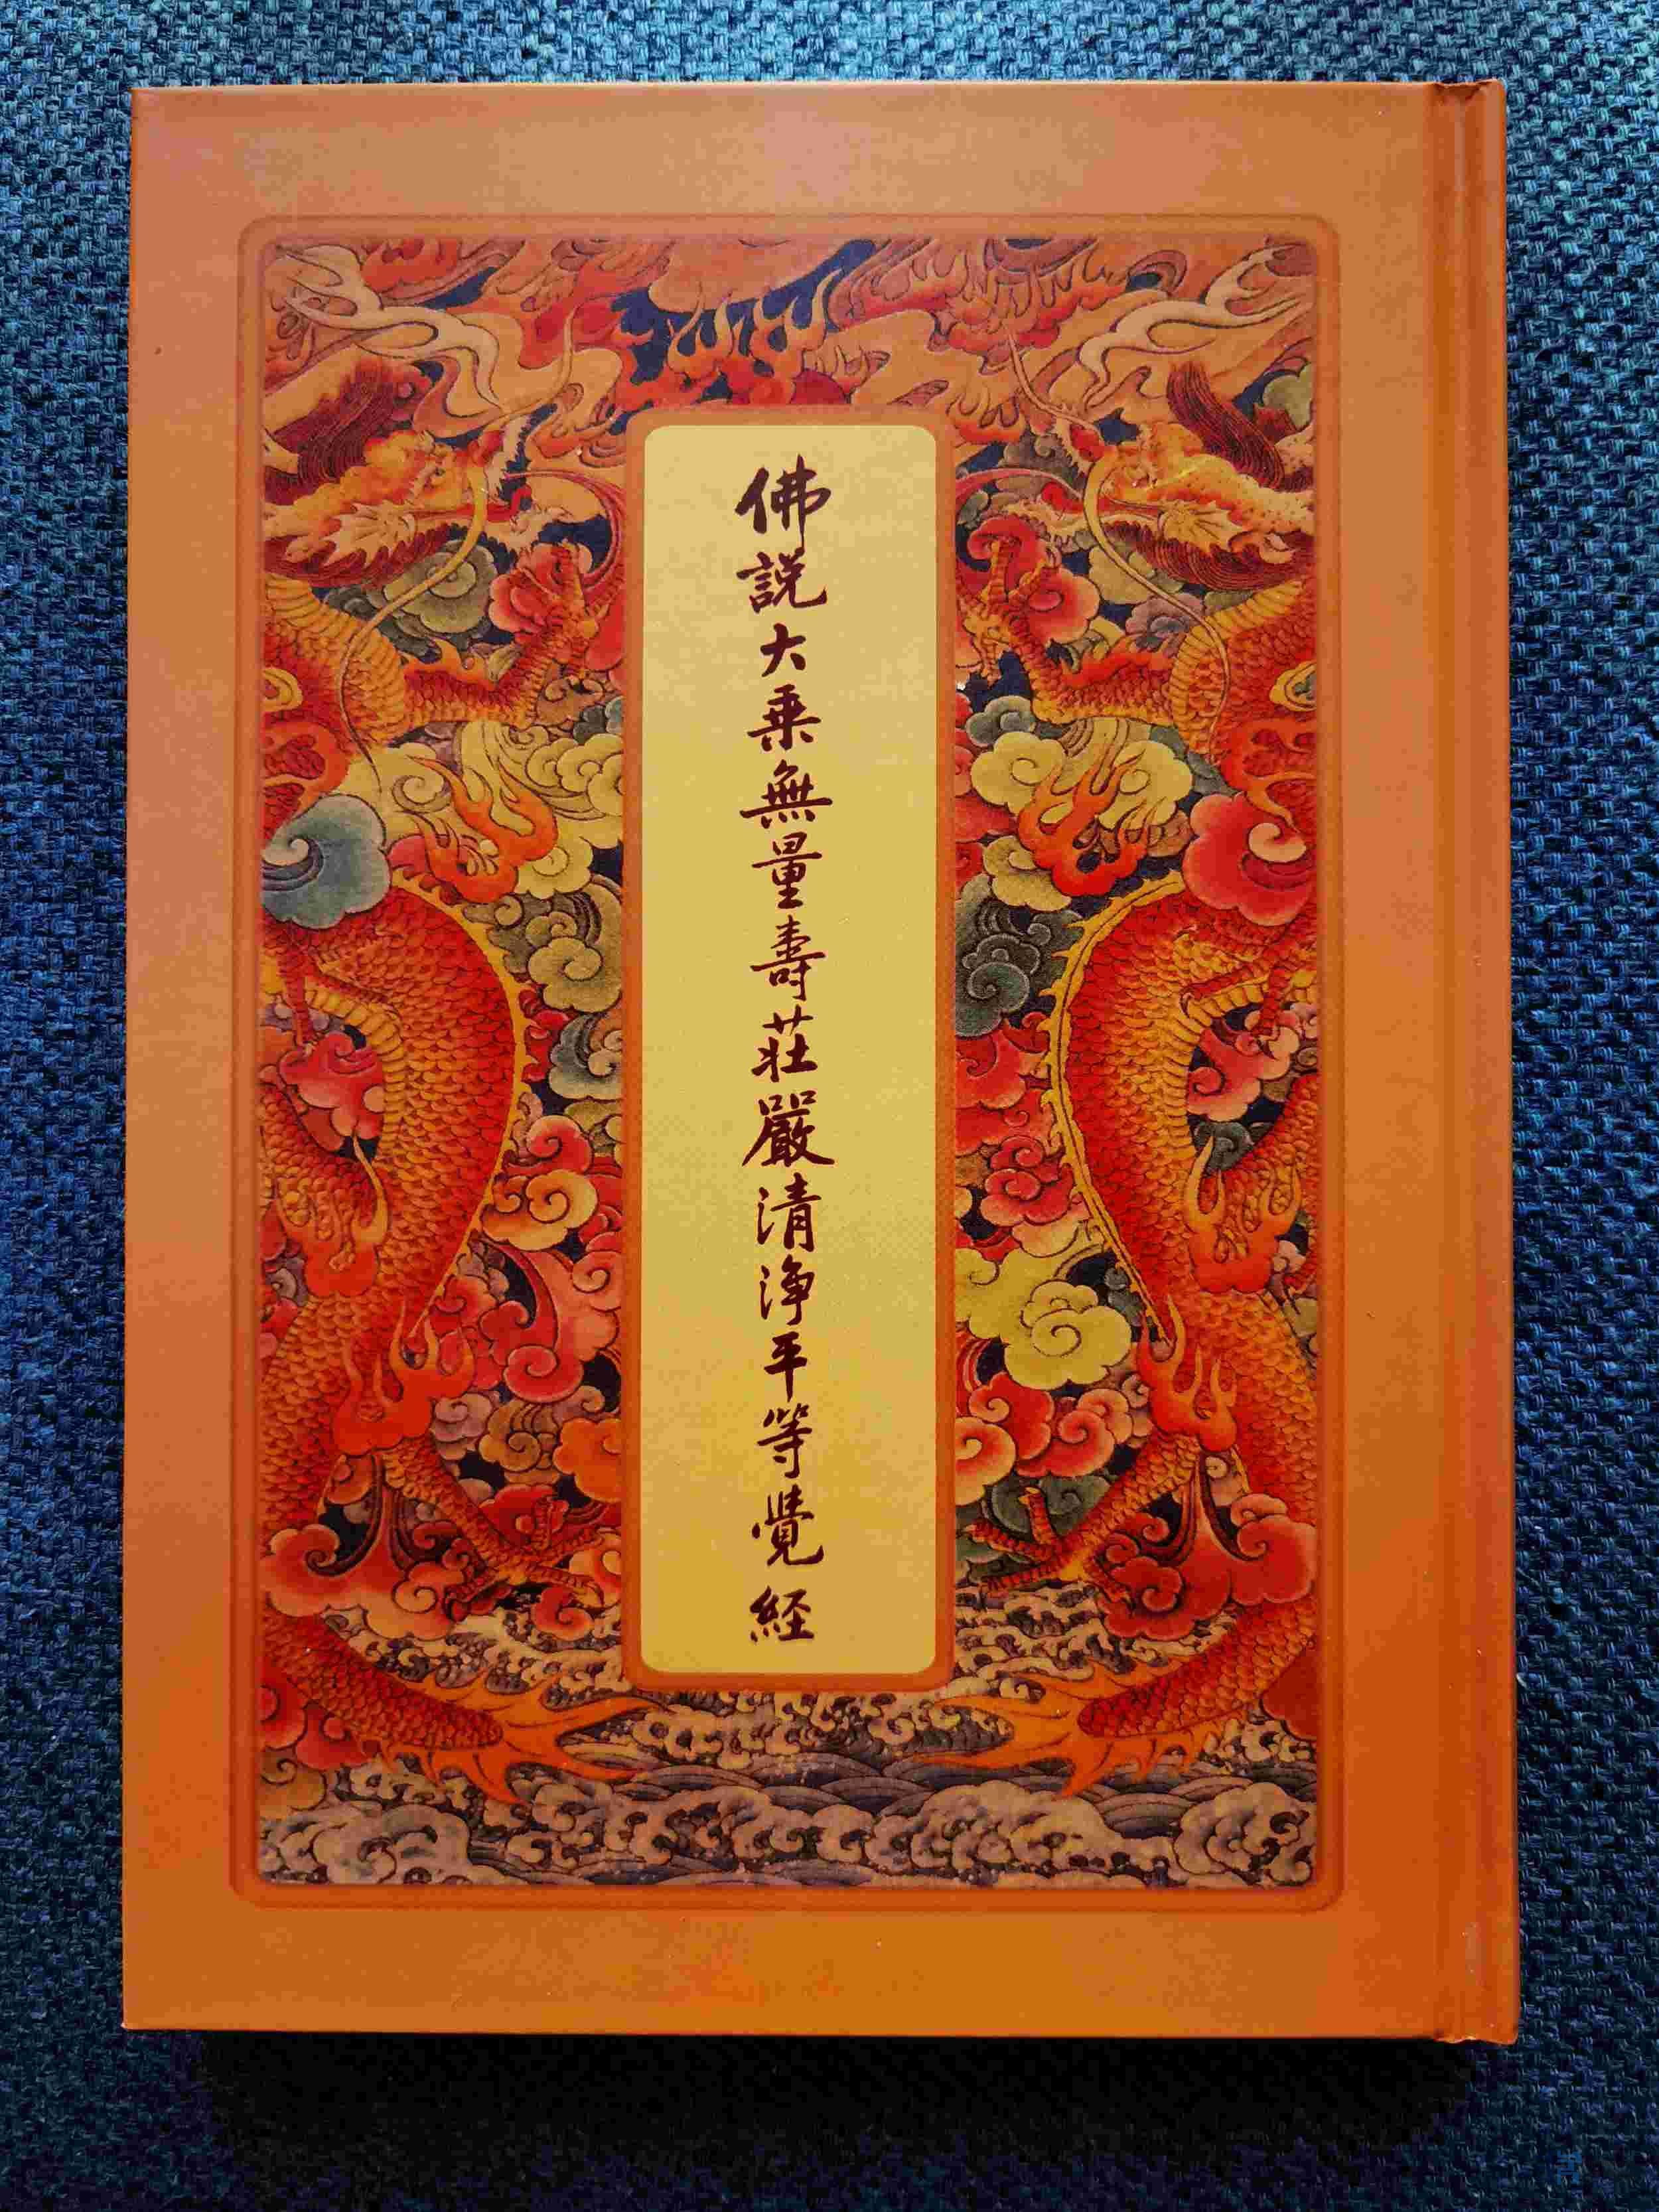 佛說大乗無量壽莊嚴清淨平等覺経